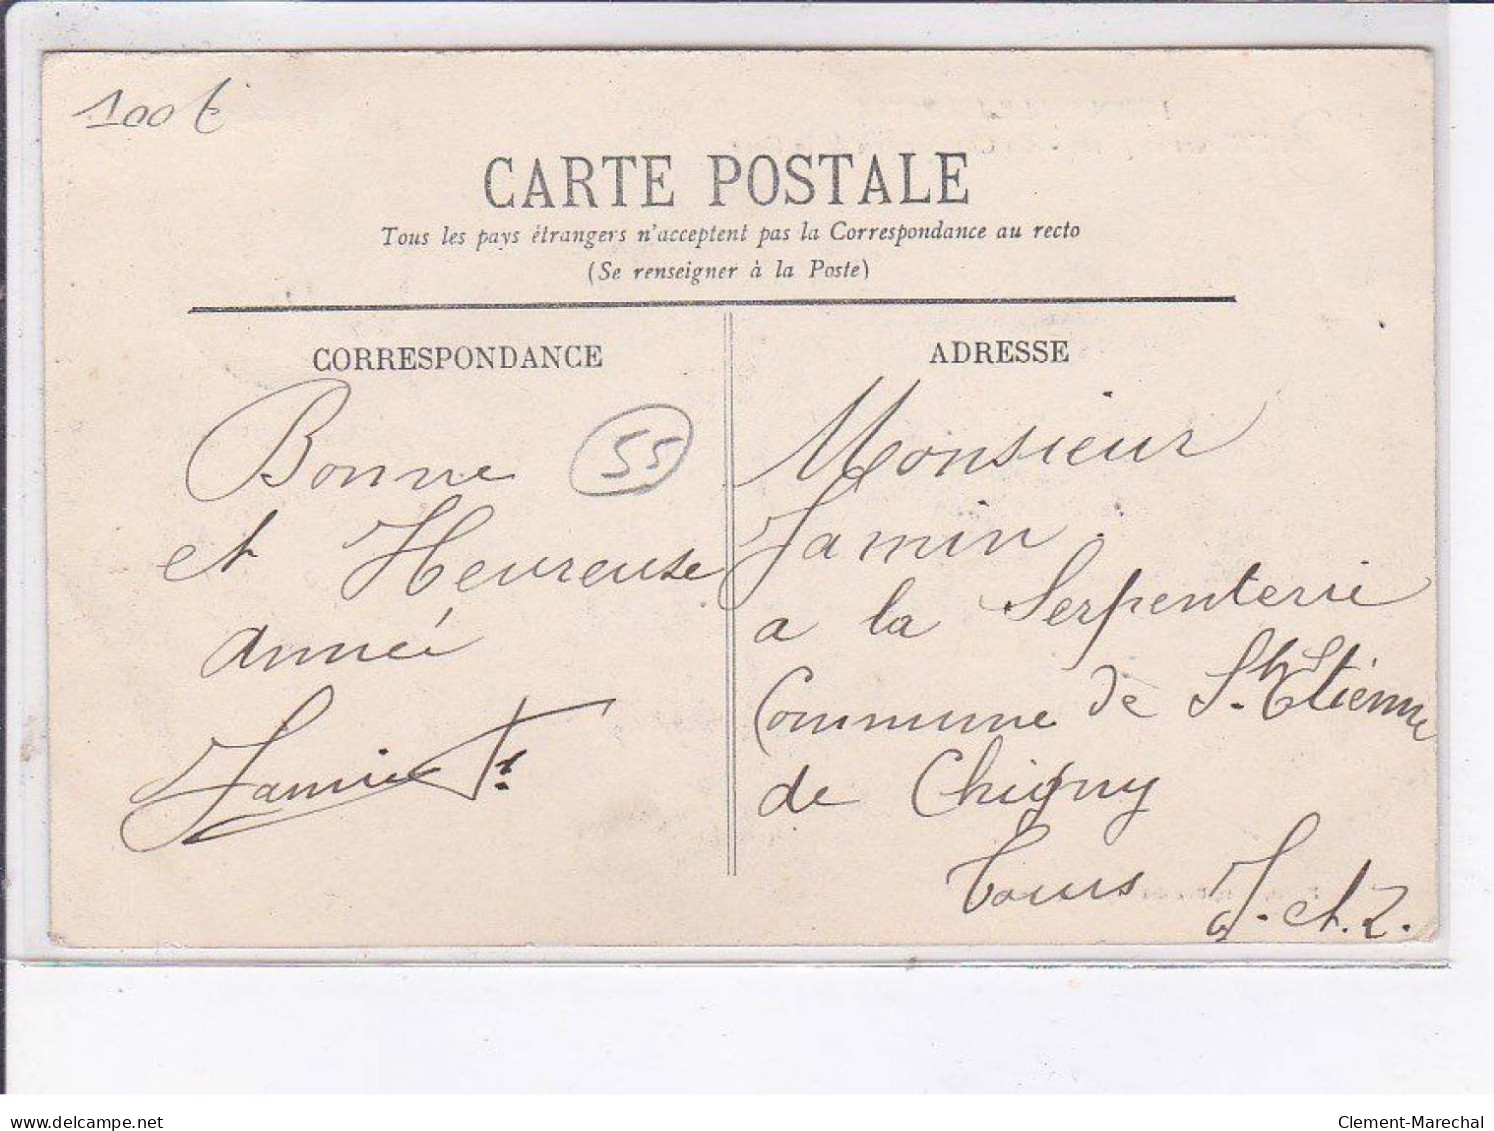 100 €
CARTE POSTALE
Tous les pays étrangers n'acceptent pas la Correspondance au recto
(Se renseigner à la Poste)
CORRESPONDANCE
Bonne
55
et Heureuse
année
Jamin
ADRESSE
Monsieur
Jamin
a la Serpenterie
Commune de St. Etienne
de Chigny
Tours
I. et. L.
delcampe.net
Clement-Marechal